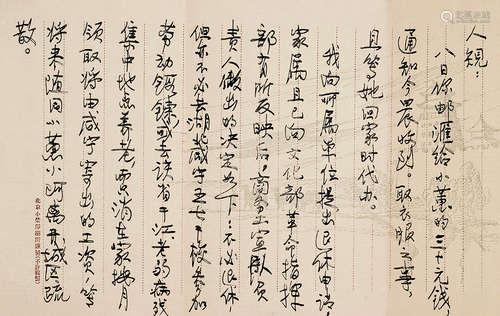 人覌：
八日你邮滙给小蕙的三十元钱，
通知今晨收到。取衣服之事，
且等她回家时代办。
我向所属单位提出退休申请，
家属且已向文化部革命指挥
部有所反映后，商务工宣队负
责人做出的决定如下：不必退休
但亦不必去湖北咸宁五七干校参加
劳动锻鍊或去该省干江老弱病残
集中地点养老，消在家按月
领取将由咸宁寄出的工资，等
将来随同小蕙小离开城区疏
散。